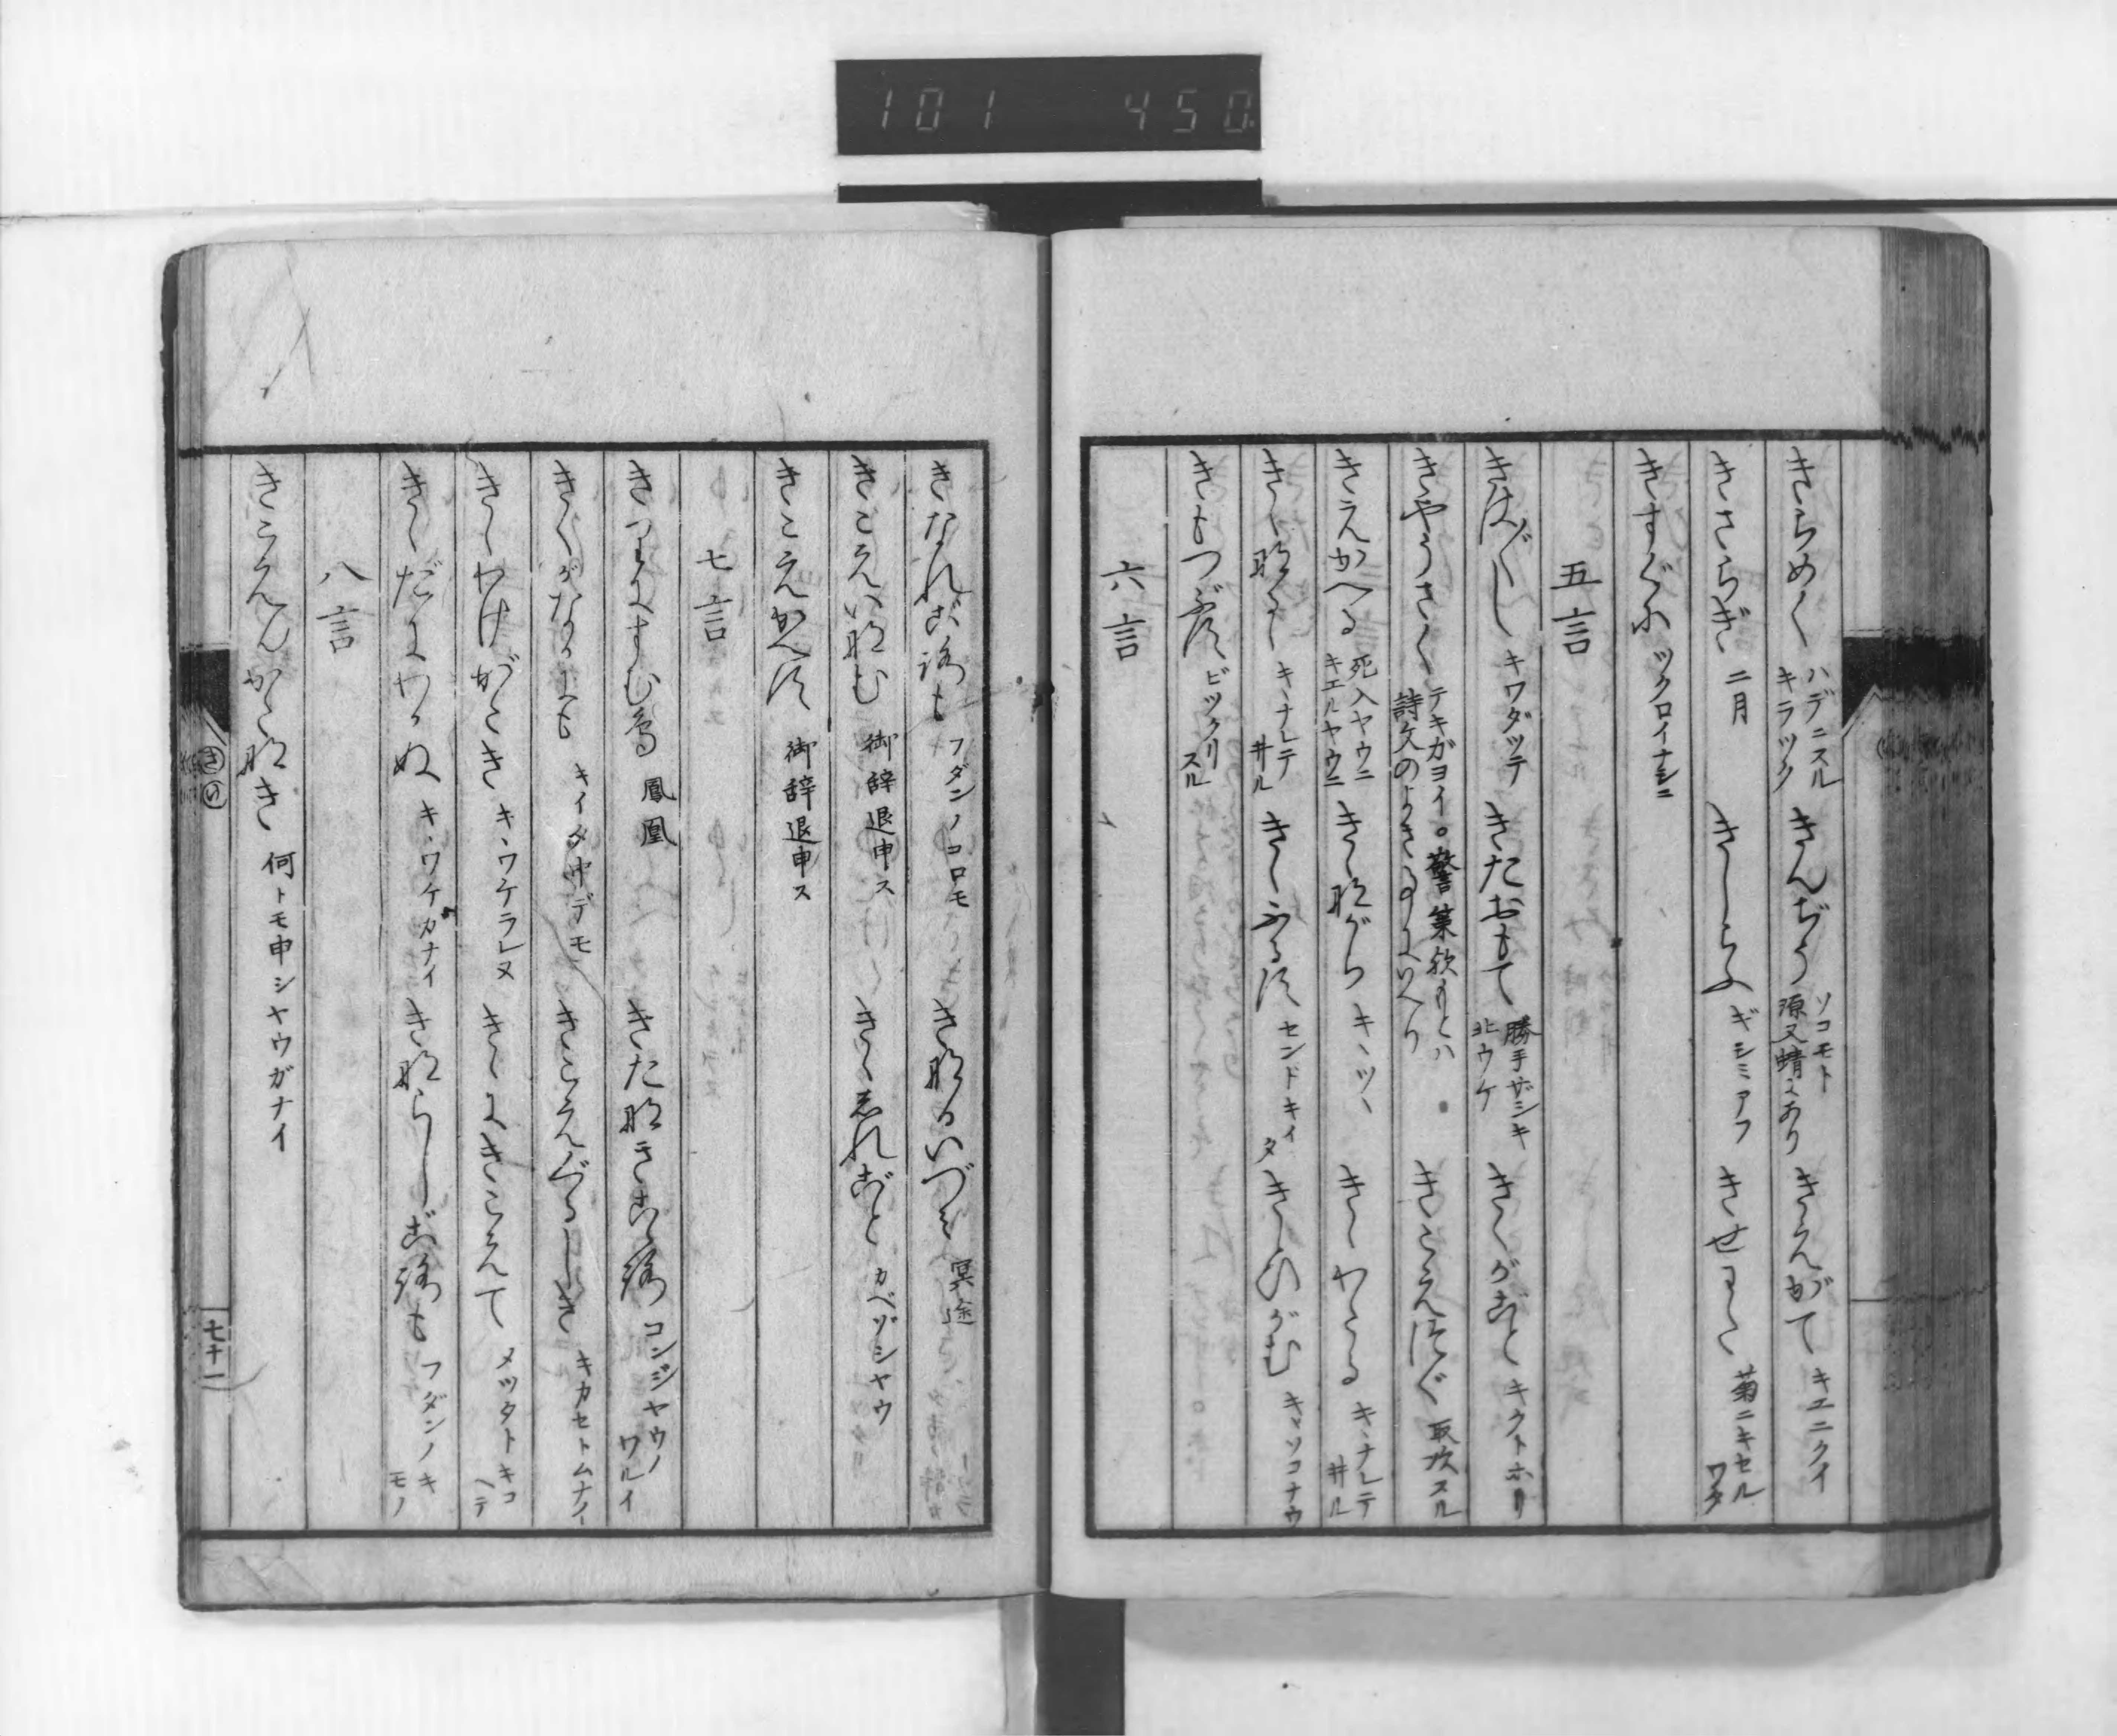 101 450
きらめく ハデニスル キラツク きんぢう ソコモト 源又蜻ニあり きえがて キエニクイ
きさらぎ 二月 きしらふ ギシミアフ きせわた 菊ニキセルワタ
きすぐに ツクロイナシニ
五言
きはぐし キワダツテ きたおもて 勝手ザシキ 北ウケ きゝがほ キクトホリ
きやうさく テキガヨイ。警策 詩文のよき きこえつぐ 取次スル
きえかへる 死入ヤウニ キエルヤウニ きゝながら キヽツヽ きゝわたる キヽナレテ井ル
きゝならし キヽナレテ井ル きゝふるす センドキイタ きゝひがむ キヽソコナウ
きもつぶす ビツクリスル
六言
きなれごろも フダンノコロモ きなるいづみ 冥途
きこえいなむ 御辞退申ス きゝしれごと カベゾシヤウ
きこえかへす 御辞退申ス
七言
きりにすむ鳥 鳳凰 きたなきこゝろ コンジヤウノワルイ
きくがなかにも キイタ中デモ きこえぐるしき キカセトムナイ
きゝわけがたき キヽワケラレヌ きゝにきこえて メツタトキコヘテ
きゝだにわかぬ キヽワケガナイ きならしごろも フダンノキモノ
八言
きこえんかたなき 何トモ申シヤウガナイ
き
七十一